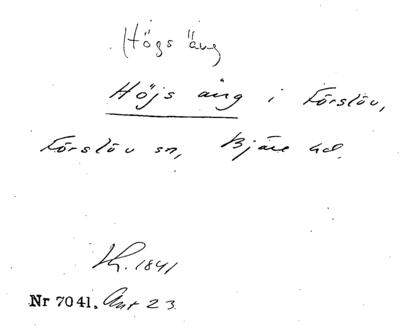 Högs äng
Höjs äng i Förslöv,
Förslöv sn, Bjäre hd.
Lh. 1841
Nr 7041. Ant 23